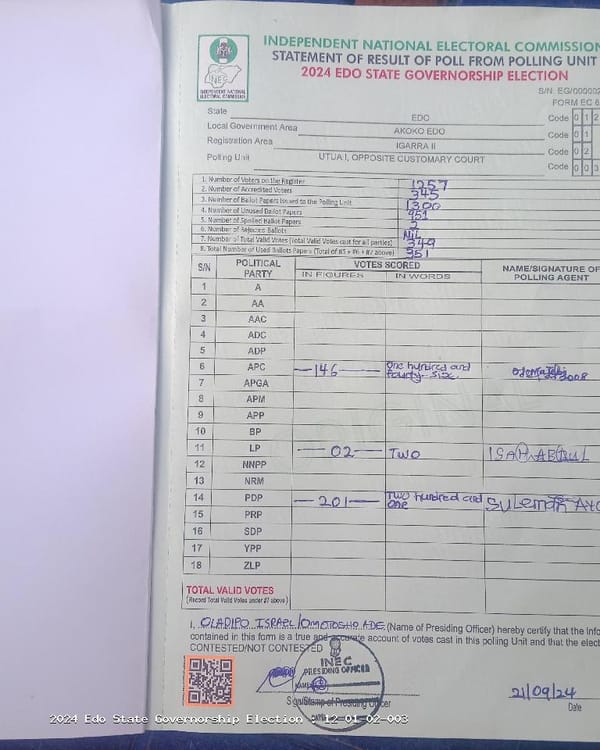 INDEPENDENT NATIONAL ELECTORAL COMMISSION
STATEMENT OF RESULT OF POLL FROM POLLING UNIT
2024 EDO STATE GOVERNORSHIP ELECTION
INEC
INDEPENDENT NATIONAL
ELECTORAL COMMISSION
S/N. EG/000002
FORM EC 8
State EDO Code 0 1 2
Local Government Area AKOKO EDO Code 0 1
Registration Area IGARRA II Code 0 2
Polling Unit UTUA I, OPPOSITE CUSTOMARY COURT Code 0 0 3
1. Number of Voters on the Register 1257
2. Number of Accredited Voters 345
3. Number of Ballot Papers Issued to the Polling Unit 1300
4. Number of Unused Ballot Papers 951
5. Number of Spoiled Ballot Papers 2
6. Number of Rejected Ballots Nil
7. Number of Total Valid Votes (Total Valid Votes cast for all parties) 349
8. Total Number of Used Ballots Papers (Total of #5 + #6 + #7 above) 351
S/N POLITICAL PARTY VOTES SCORED NAME/SIGNATURE OF POLLING AGENT
IN FIGURES IN WORDS
1 A
2 AA
3 AAC
4 ADC
5 ADP
6 APC 146 One hundred and Fourty-Six
7 APGA
8 APM
9 APP
10 BP
11 LP 02 TWO ISAH ABDUL
12 NNPP
13 NRM
14 PDP 201 Two hundred and one Suleman
15 PRP
16 SDP
17 YPP
18 ZLP
TOTAL VALID VOTES
(Record Total Valid Votes under #7 above)
I, OLADIPO ISRAEL OMOTOSHO ADE (Name of Presiding Officer) hereby certify that the info
contained in this form is a true and accurate account of votes cast in this polling Unit and that the elect
CONTESTED/NOT CONTESTED
INEC
PRESIDING OFFICER
NAME
DATE
Sign/Stamp of Presiding Officer
21/09/24
Date
2024 Edo State Governorship Election - 12-01-02-003